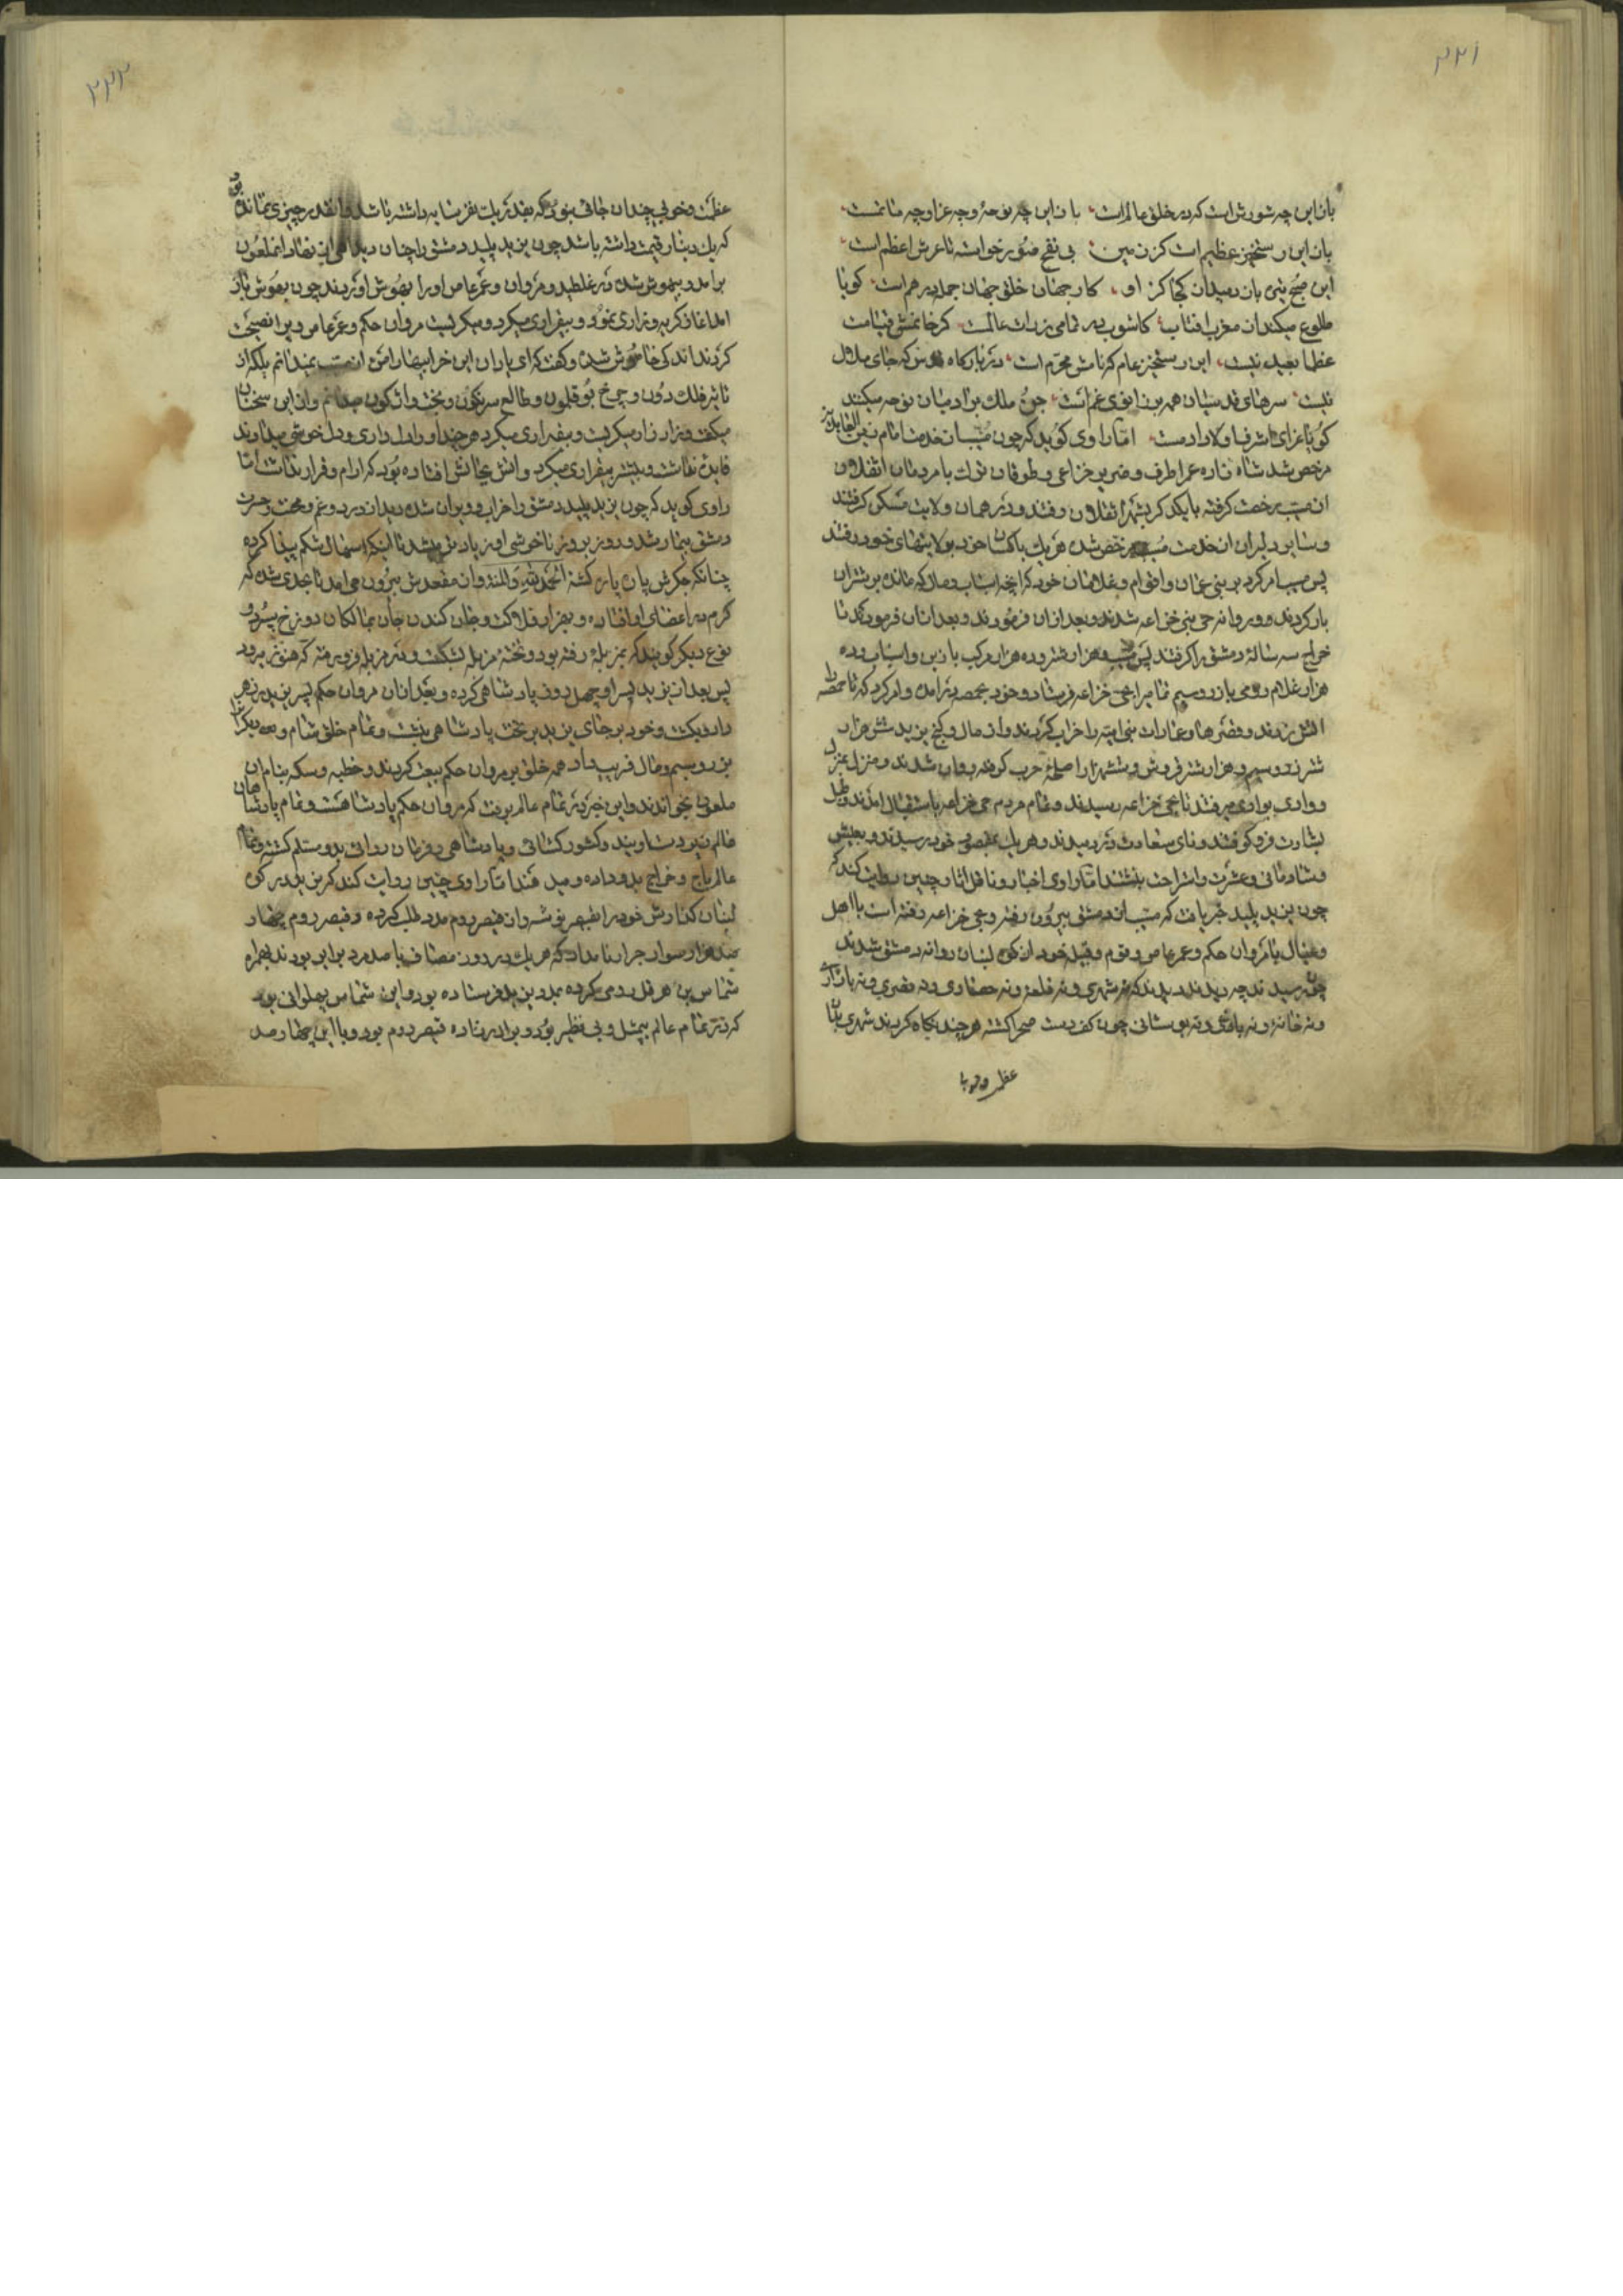 ۲۲۱
باز این چه شورش است که در خلق عالم است باز این چه نوحه و چه عزا و چه ماتمست
باز این چه رستخیز عظیم است کز زمین بی نفخ صور خواسته تا عرش اعظم است
این صبح تیره باز دمید از کجا کز او کار جهان خلق جهان جمله درهم است گویا
طلوع میکند از مغرب افتاب کاشوب در تمامی ذرات عالمست کر خوانمش قیامت
عظما بعید نیست این رستخیز عام که نامش محرم است در بارکاه قدس که جای ملال
نیست سرهای قدسیان همه بر زانوی غم است جن و ملک بر ادمیان نوحه میکنند
کویا عزای اشرف اولاد ادمست اما راوی کوید که چون مسیب از خدمت امام زین العابدین
مرخص شد شاه زاده عمر اطرف و ضریر خزاعی و طوغان ترک با مردمان
از مسیب رخصت کرفته با یکدکر بشهر رفتند و در همان ولایت مسکن کرفتند
و سایر دلیران از خدمت مسیب مرخص شده هر یک با کسان خود بولایتهای خود رفتند
پس مسیب امر کرد بر بنی عمان و اقوام و غلامان خود که انچه اسباب و مال که مانده بر شتران
بار کردند و روانه حی بنی خزاعه شدند و بعد از ان فرمودند تا
خراج سه ساله دمشق را کرفتند پس مسیب هزار شتر و ده هزار مرکب با زین و اسباب و ده
هزار غلام رومی با زر و سیم تمام را بحی خزاعه فرستاد و خود بحمصه در امده و امر کرد که تا حمصه را
اتش زدند و قصرها و عمارات بنی امیه را خراب کردند و از مال و کنج یزید شش هزار
شتر زر و سیم و هزار شتر فروش و شتر را اصلحه حرب کرفته روان شدند و منزل بمنزل
و وادی بوادی میرفتند تا بحی خزاعه رسیدند و تمام مردم حی خزاعه باستقبال امدند و طبل
بشارت فرو کوفتند و نای سعادت در دمیدند و هر یک بمقصود خود رسیدند و بعیش
و شادمانی و عشرت و استراحت بنشستند اما راوی اخبار و ناقل اثار چنین روایت کند که
چون یزید پلید خبر یافت که مسیب از دمشق بیرون رفته و بحی خزاعه رفته است با اهل
و عیال با مروان حکم و عمر عاص و قوم و قبیله خود از کوه لبنان روانه دمشق شدند
چون رسیدند چه دیدند دیدند که نه شهری و نه قلعه و نه حصاری و نه قصری و نه بازاری
و نه خانه و نه باغی و نه بوستانی چون کف دست صحرا کشته هر چند نکاه کردند شهری بدان
عظمت و خوبی
۲۲۲
عظمت و خوبی چندان جائی نبود که بقدر یک نفر سایه داشته باشد و انقدر چیزی نمانده بود
که یک دینار قیمت داشته باشد چون یزید پلید دمشق را چنان دید اه از نهاد انملعون
برامد و بیهوش شده در غلطید و مروان و عمر عاص او را بهوش اوردند چون بهوش باز
امد اغاز کریه و زاری نمود و بیقراری میکرد و میکریست مروان حکم و عمر عاص ویرا نصیحت
کردند اندکی خاموش شده و کفت که ای یاران این خرابیها را من از مسیب نمیدانم بلکه از
تاثیر فلک دون و چرخ بوقلمون و طالع سرنکون و بخت واژکون میدانم و از این سخنان
میکفت و زار زار میکریست و بیقراری میکرد هر چند او را دلداری و دلخوشی میدادند
فایده نداشت و بیشتر بیقراری میکرد و اتش بجانش افتاده بود که ارام و قرار نداشت اما
راوی کوید که چون یزید پلید دمشق را خراب و ویران شده دید از درد و غم و محنت و حسرت
دمشق بیمار شد و روز بروز ناخوشی او زیادتر میشد تا اینکه اسهال شکم پیدا کرده
چنانکه جکرش پاره پاره کشته الحمد لله و المنه و از مقعدش بیرون می امد تا بحدی شد که
کرم در اعضای او افتاده و بهزار فلاکت و جان کندن جان بمالکان دوزخ سپرد و
نوع دیکر کویند که بمزبله رفته بود و تخته مزبله بشکست و در مزبله فرو رفته که هنوز میرود
پس بعد از یزید پسر او چهل روز پادشاهی کرده و بعد از ان مروان حکم پسر یزید را زهر
داد و بکشت و خود بر جای یزید بر تخت پادشاهی نشست و تمام خلق شام و دیکر را
بزر و سیم و مال فریب داد همه خلق بر مروان حکم بیعت کردند و خطبه و سکه بنام ان
ملعون بخواندند و این خبر در تمام عالم برفت که مروان حکم پادشاهست و تمام پادشاهان
عالم کشور کشائی و پادشاهی و فرمان روائی بدو مسلم کشته و تمام
عالم باج و خراج بدو داده و میدهند اما راوی چنین روایت کند که یزید در کوه
لبنان کس خود را بقیصر فرستاد و از قیصر روم مدد طلب کرده و قیصر روم چهار
صد هزار سوار جرار نامداد که هر یک در روز مصاف با صد مرد برابر بودند بهمراه
شماس بن هرقل رومی کرده بمدد یزید فرستاده بود و این شماس پهلوانی بود
که در تمام عالم بیمثل و بی نظیر بود و برادر زاده قیصر روم بود و با این چهار صد